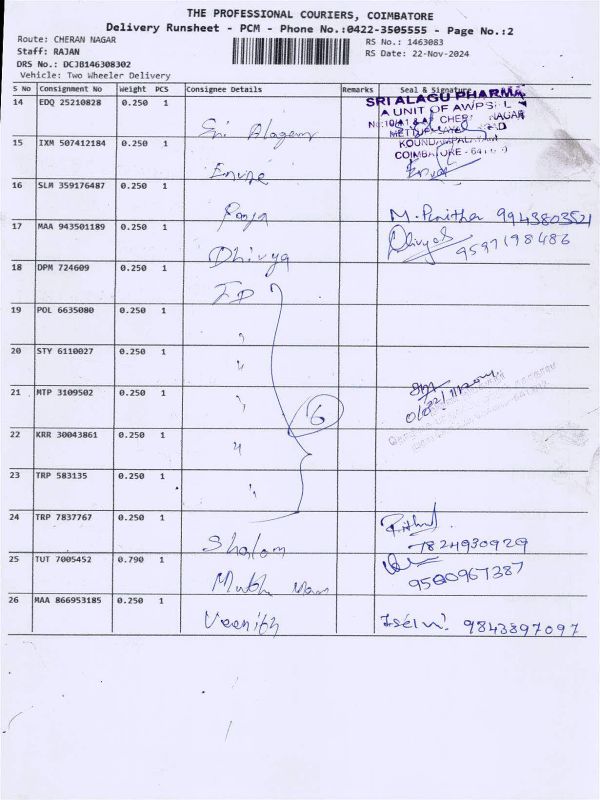 THE PROFESSIONAL COURIERS, COIMBATORE
Delivery Runsheet - PCM - Phone No.:0422-3505555 - Page No.:2
Route: CHERAN NAGAR
RS No.: 1463083
Staff: RAJAN
RS Date: 22-Nov-2024
DRS No.: DCJB146308302
Vehicle: Two Wheeler Delivery
S No Consignment No Weight PCS Consignee Details Remarks Seal & Signature
14 EDQ 25210828 0.250 1
SRI ALAGU PHARMA
A UNIT OF
NAGAR
COIMBATORE
Sri Alagu
15 IXM 507412184 0.250 1
16 SLM 359176487 0.250 1
Pooja
M. Pavithra 9943803521
17 MAA 943501189 0.250 1
Dhivya
9597198486
18 DPM 724609 0.250 1
ID
19 POL 6635080 0.250 1
"
20 STY 6110027 0.250 1
"
21 MTP 3109502 0.250 1
"
6
22 KRR 30043861 0.250 1
"
23 TRP 583135 0.250 1
"
24 TRP 7837767 0.250 1
Shalom
7824930929
25 TUT 7005452 0.790 1
9580967387
26 MAA 866953185 0.250 1
9843897097